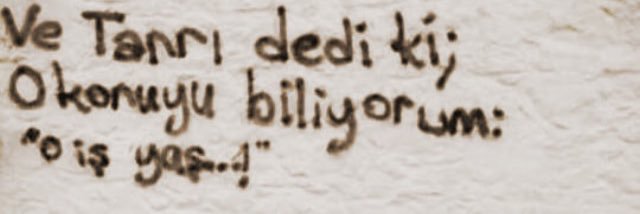 Ve Tanrı dedi ki;
O konuyu biliyorum:
"o iş yaş...!"